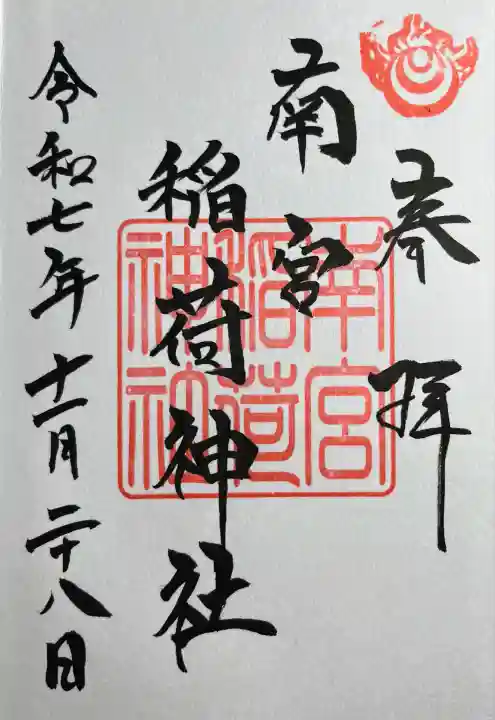 奉拝
南宮
稲荷神社
南宮
稲荷
神社
令和七年十一月二十八日